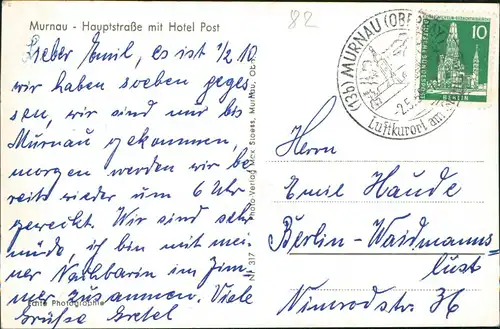 Murnau - Hauptstraße mit Hotel Post
82
Lieber Emil, es ist 1/2 10
wir haben soeben geges-
sen, wir sind nur bis
Murnau gekommen,
morgen werden wir be-
reits wieder um 6 Uhr
geweckt. Wir sind sehr
müde, ich bin mit mei-
ner Nachbarin im Zim-
mer zusammen. Viele
Grüße Gretel
Echte Photographie
Nr. 317 Photo-Verlag Mark Stoess, Murnau, Ob
(13b) MURNAU (OBE
-2.5.
Luftkurort am
10
BERLIN
Herrn
Emil Haude
Berlin-Waidmanns-
lust
Nimrodstr. 36